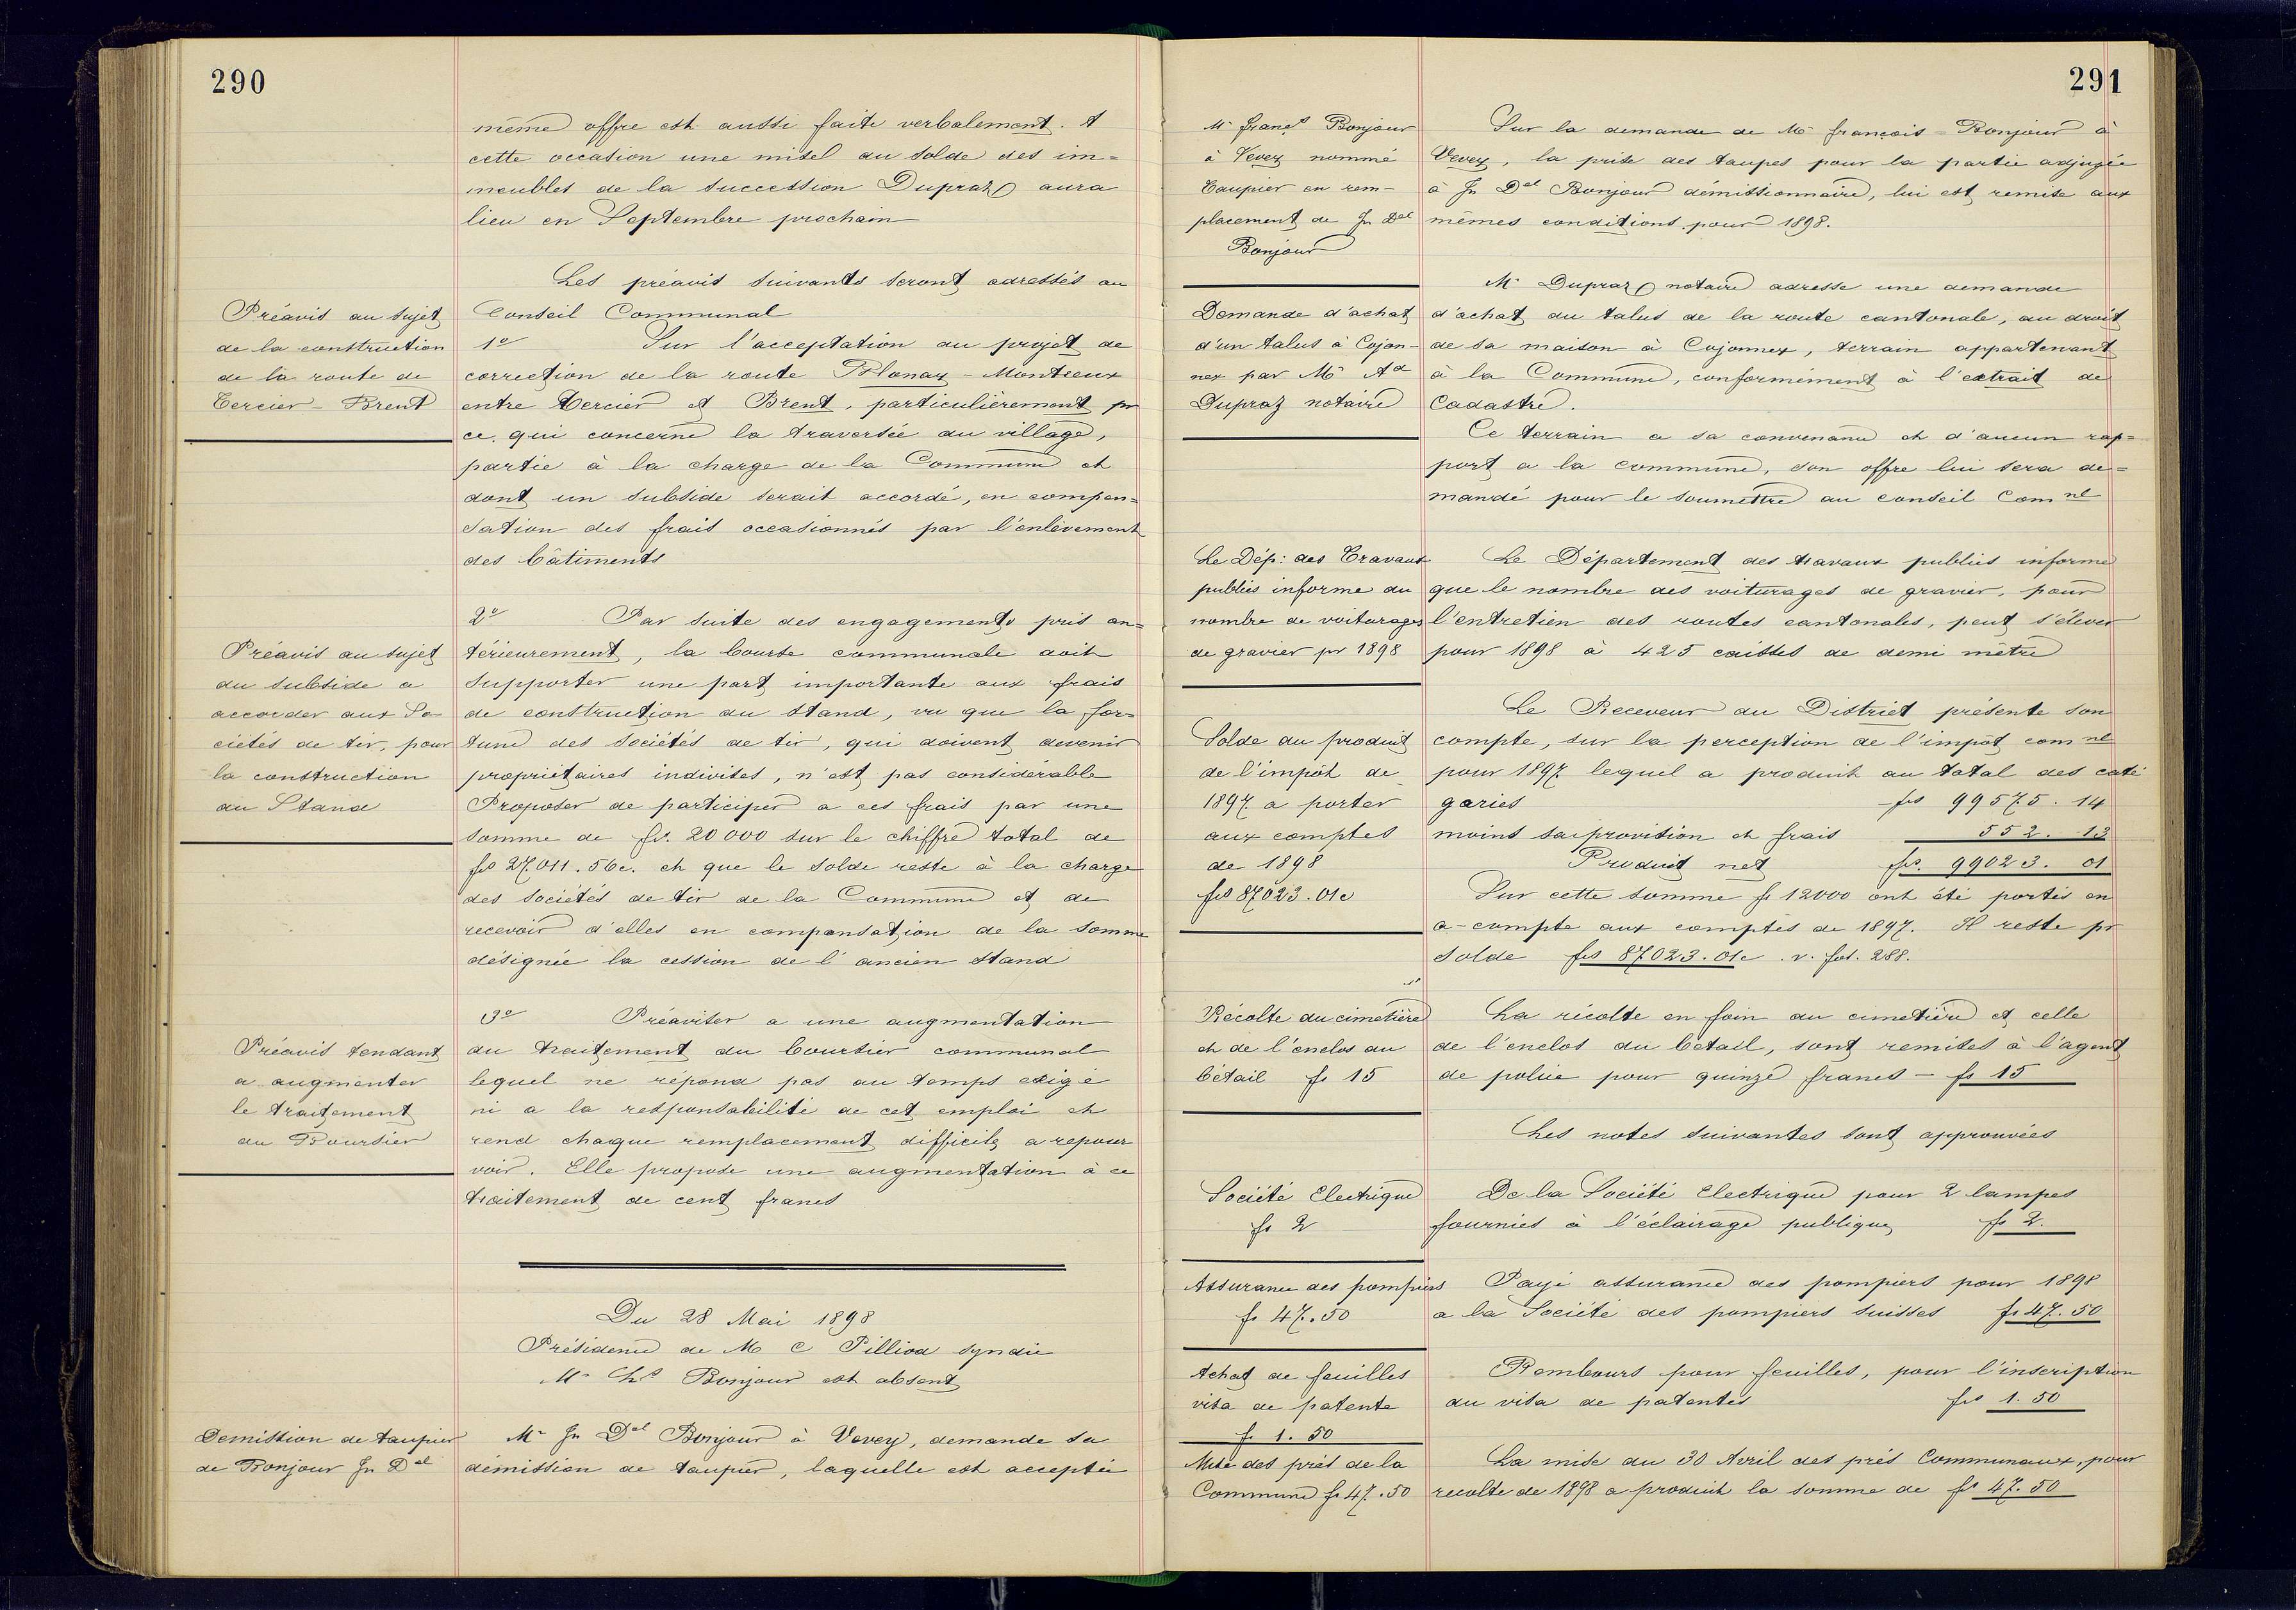 290
même offre est aussi faite verbalement. A
cette occasion une mise du solde des im=
meubles de la succession Dupraz aura
lieu en Septembre prochain
Les préavis suivants seront adressés au
Conseil Communal
Préavis au sujet
de la construction
de la route de
Tercier - Brent
1º Sur l'acceptation du projet de
correction de la route Blonay - Montreux
entre Tercier et Brent, particulièrement pr
ce qui concerne la traversée du village,
partie à la charge de la Commune et
dont un subside serait accordé, en compen=
sation des frais occasionnés par l'enlèvement
des bâtiments
Préavis au sujet
du subside a
accorder aux So-
ciétés de tir, pour
la construction
du Stand
2º Par suite des engagements pris an=
térieurement, la bourse communale doit
supporter une part importante aux frais
de construction du stand, vu que la for=
tune des sociétés de tir, qui doivent devenir
propriétaires indivises, n'est pas considérable
Proposer de participer a ces frais par une
somme de frs. 20000 sur le chiffre total de
frs 27.011.56c. et que le solde reste à la charge
des sociétés de tir de la Commune et de
recevoir d'elles en compensation de la somme
désignée la cession de l'ancien stand
Préavis tendant
a augmenter
le traitement
du Boursier
3º Préaviser a une augmentation
du traitement du boursier communal
lequel ne répond pas au temps exigé
ni a la responsabilité de cet emploi et
rend chaque remplacement difficile a repour
voir. Elle propose une augmentation à ce
traitement de cent francs
Du 28 Mai 1898
Présidence de M C Pilliod syndic
Mr Chs Bonjour est absent
Démission de taupier
de Bonjour Jn Del
Mr Jn Del Bonjour à Vevey, demande sa
démission de taupier, laquelle est acceptée
291
Mr Franços Bonjour
à Vevey nommé
Taupier en rem-
placement de Jn Del
Bonjour
Sur la demande de Mr François = Bonjour à
Vevey, la prise des taupes pour la partie adjugée
à Jn Del Bonjour démissionnaire, lui est remise aux
mêmes conditions pour 1898.
Demande d'achat
d'un talus à Cojon-
nex par Mr Ad
Dupraz notaire
Mr Dupraz notaire adresse une demande
d'achat du talus de la route cantonale, au droit
de sa maison à Cojonnex, terrain appartenant
à la Commune, conformément à l'extrait de
Cadastre.
Ce terrain a sa convenance et d'aucun rap=
port a la commune, son offre lui sera de=
mandé pour le soumettre au conseil Comnl
Le Dép: des Travaux
publics informe du
nombre de voiturages
de gravier pr 1898
Le Département des travaux publics informe
que le nombre des voiturages de gravier, pour
l'entretien des routes cantonales, peut s'élever
pour 1898 à 425 caisses de demi mètre
Solde du produit
de l'impôt de
1897 a porter
aux comptes
de 1898
frs 87023.01c
Le Receveur du District présente son
compte, sur la perception de l'impôt comnl
pour 1897 lequel a produit au total des caté
gories frs 99575.14
moins sa provision et frais 552.13
Produit net frs. 99023.01
Sur cette somme fr 12000 ont été portés en
a-compte aux comptes de 1897. Il reste pr
solde frs 87023.01c. v. fol. 288.
Récolte du cimetière
et de l'enclos du
bétail fr 15
La récolte en foin du cimetière et celle
de l'enclos du bétail, sont remises à l'agent
de police pour quinze francs - fr 15
Les notes suivantes sont approuvées
Société Electrique
fr 2
De la Société Electrique pour 2 lampes
fournies à l'éclairage publique fr 2.
Assurance des pompiers
fr 47.50
Payé assurance des pompiers pour 1898
a la Société des pompiers suisses fr 47.50
Achat de feuilles
visa de patente
fr 1.50
Rembours pour feuilles, pour l'inscription
du visa de patentes frs 1.50
Mise des prés de la
Commune fr 47.50
La mise du 30 Avril des prés Communaux, pour
récolte de 1898 a produit la somme de frs 47.50